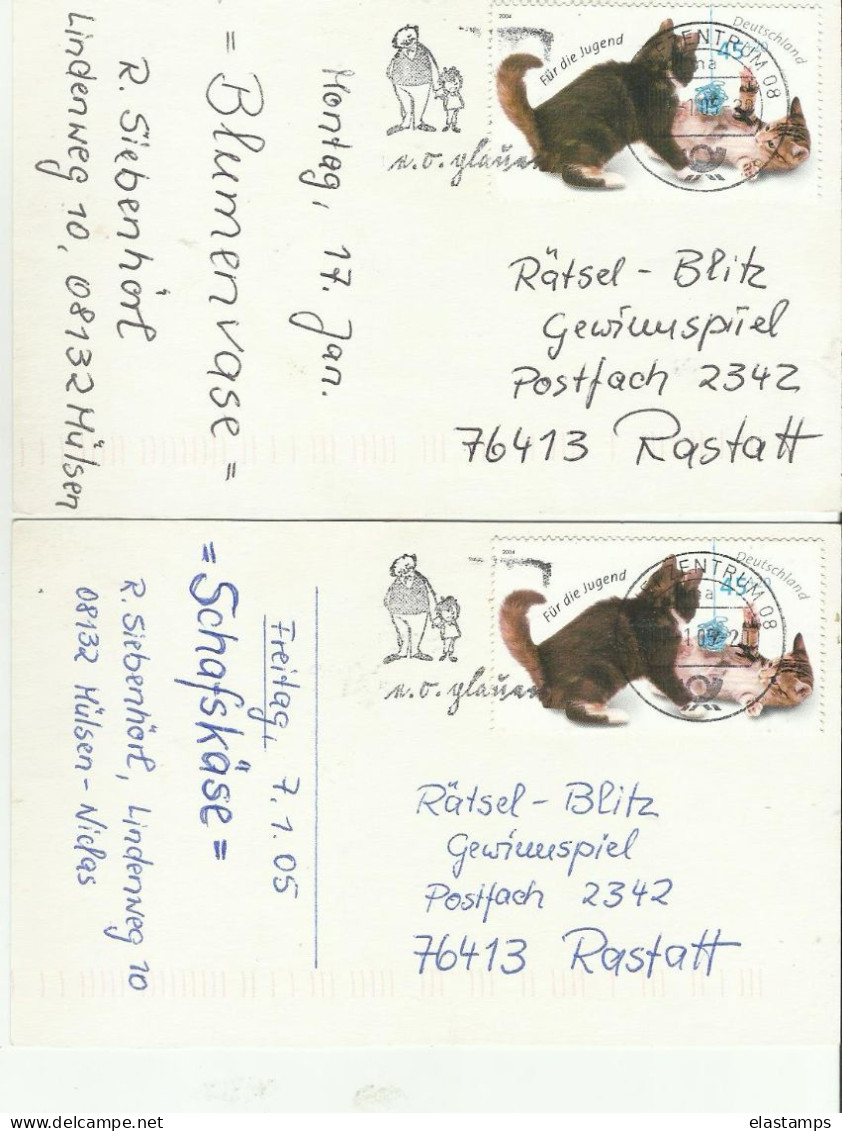 = Blumenvase =
Montag, 17. Jan.
R. Siebenhörl
Lindenweg 10, 08132 Mülsen
2004
Für die Jugend
Deutschland
45
ZENTRUM 08
e.o. plauen
Rätsel - Blitz
Gewinnspiel
Postfach 2342
76413 Rastatt
= Schafskäse =
Freitag, 7.1.05
R. Siebenhörl, Lindenweg 10
08132 Mülsen - Niclas
2004
Für die Jugend
Deutschland
45
ZENTRUM 08
e.o. plauen
Rätsel - Blitz
Gewinnspiel
Postfach 2342
76413 Rastatt
elastamps